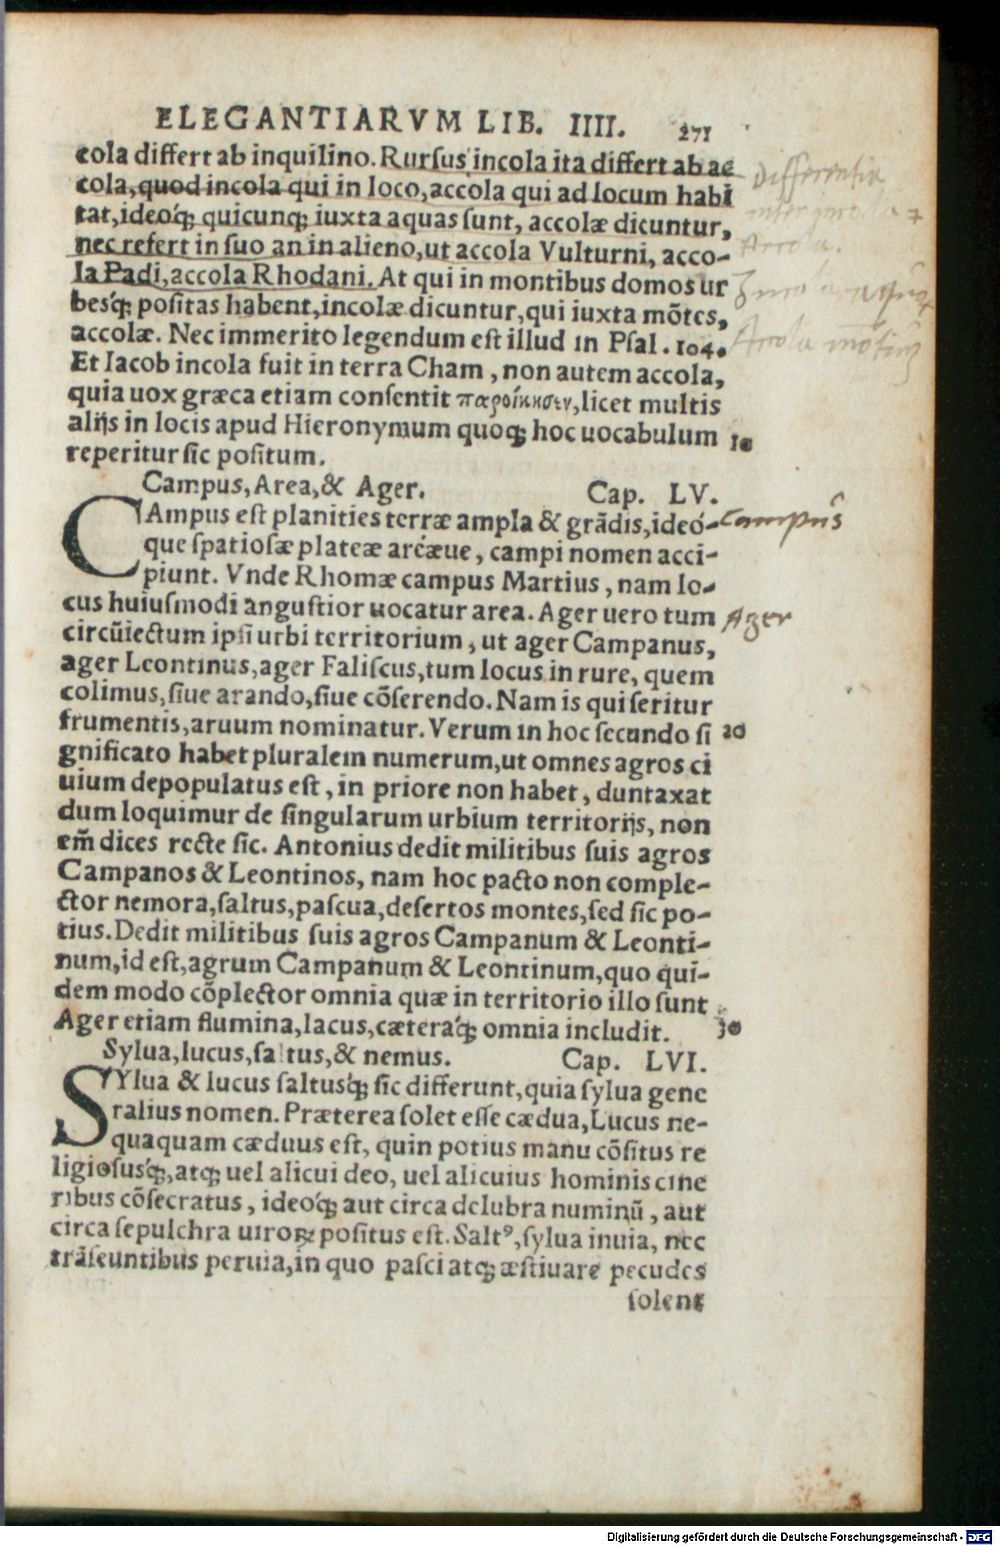 ELEGANTIARVM LIB. IIII. 271
cola differt ab inquilino. Rursus incola ita differt ab ac
cola, quod incola qui in loco, accola qui ad locum habi
tat, ideoq́ꝫ quicunqꝫ iuxta aquas sunt, accolæ dicuntur,
nec refert in suo an in alieno, ut accola Vulturni, acco-
la Padi, accola Rhodani. At qui in montibus domos ur
besq́ꝫ positas habent, incolæ dicuntur, qui iuxta mõtes,
accolæ. Nec immerito legendum est illud in Psal. 104.
Et Iacob incola fuit in terra Cham, non autem accola,
quia uox græca etiam consentit παροίκησιν, licet multis
alijs in locis apud Hieronymum quoqꝫ hoc uocabulum 10
reperitur sic positum.
Campus, Area, & Ager. Cap. LV.
CAmpus est planities terræ ampla & grãdis, ideo-
que spatiosæ plateæ areæue, campi nomen acci-
piunt. Vnde Rhomæ campus Martius, nam lo-
cus huiusmodi angustior uocatur area. Ager uero tum
circũiectum ipsi urbi territorium, ut ager Campanus,
ager Leontinus, ager Faliscus, tum locus in rure, quem
colimus, siue arando, siue cõserendo. Nam is qui seritur
frumentis, aruum nominatur. Verum in hoc secundo si 20
gnificato habet pluralem numerum, ut omnes agros ci
uium depopulatus est, in priore non habet, duntaxat
dum loquimur de singularum urbium territorijs, non
em̃ dices recte sic. Antonius dedit militibus suis agros
Campanos & Leontinos, nam hoc pacto non comple-
ctor nemora, saltus, pascua, desertos montes, sed sic po-
tius. Dedit militibus suis agros Campanum & Leonti-
num, id est, agrum Campanum & Leontinum, quo qui-
dem modo cõplector omnia quæ in territorio illo sunt
Ager etiam flumina, lacus, cæteraq́ꝫ omnia includit. 30
Sylua, lucus, saltus, & nemus. Cap. LVI.
SYlua & lucus saltusq́ꝫ sic differunt, quia sylua gene
ralius nomen. Præterea solet esse cædua, Lucus ne-
quaquam cæduus est, quin potius manu cõsitus re
ligiosusq́ꝫ, atqꝫ uel alicui deo, uel alicuius hominis cine
ribus cõsecratus, ideoq́ꝫ aut circa delubra numinũ, aut
circa sepulchra uiroꝝ positus est. Saltꝰ, sylua inuia, nec
trãseuntibus peruia, in quo pasci atqꝫ æstiuare pecudes
solent
differentia
inter
Accola.
Incola
Accola
campus
Ager
Digitalisierung gefördert durch die Deutsche Forschungsgemeinschaft - DFG